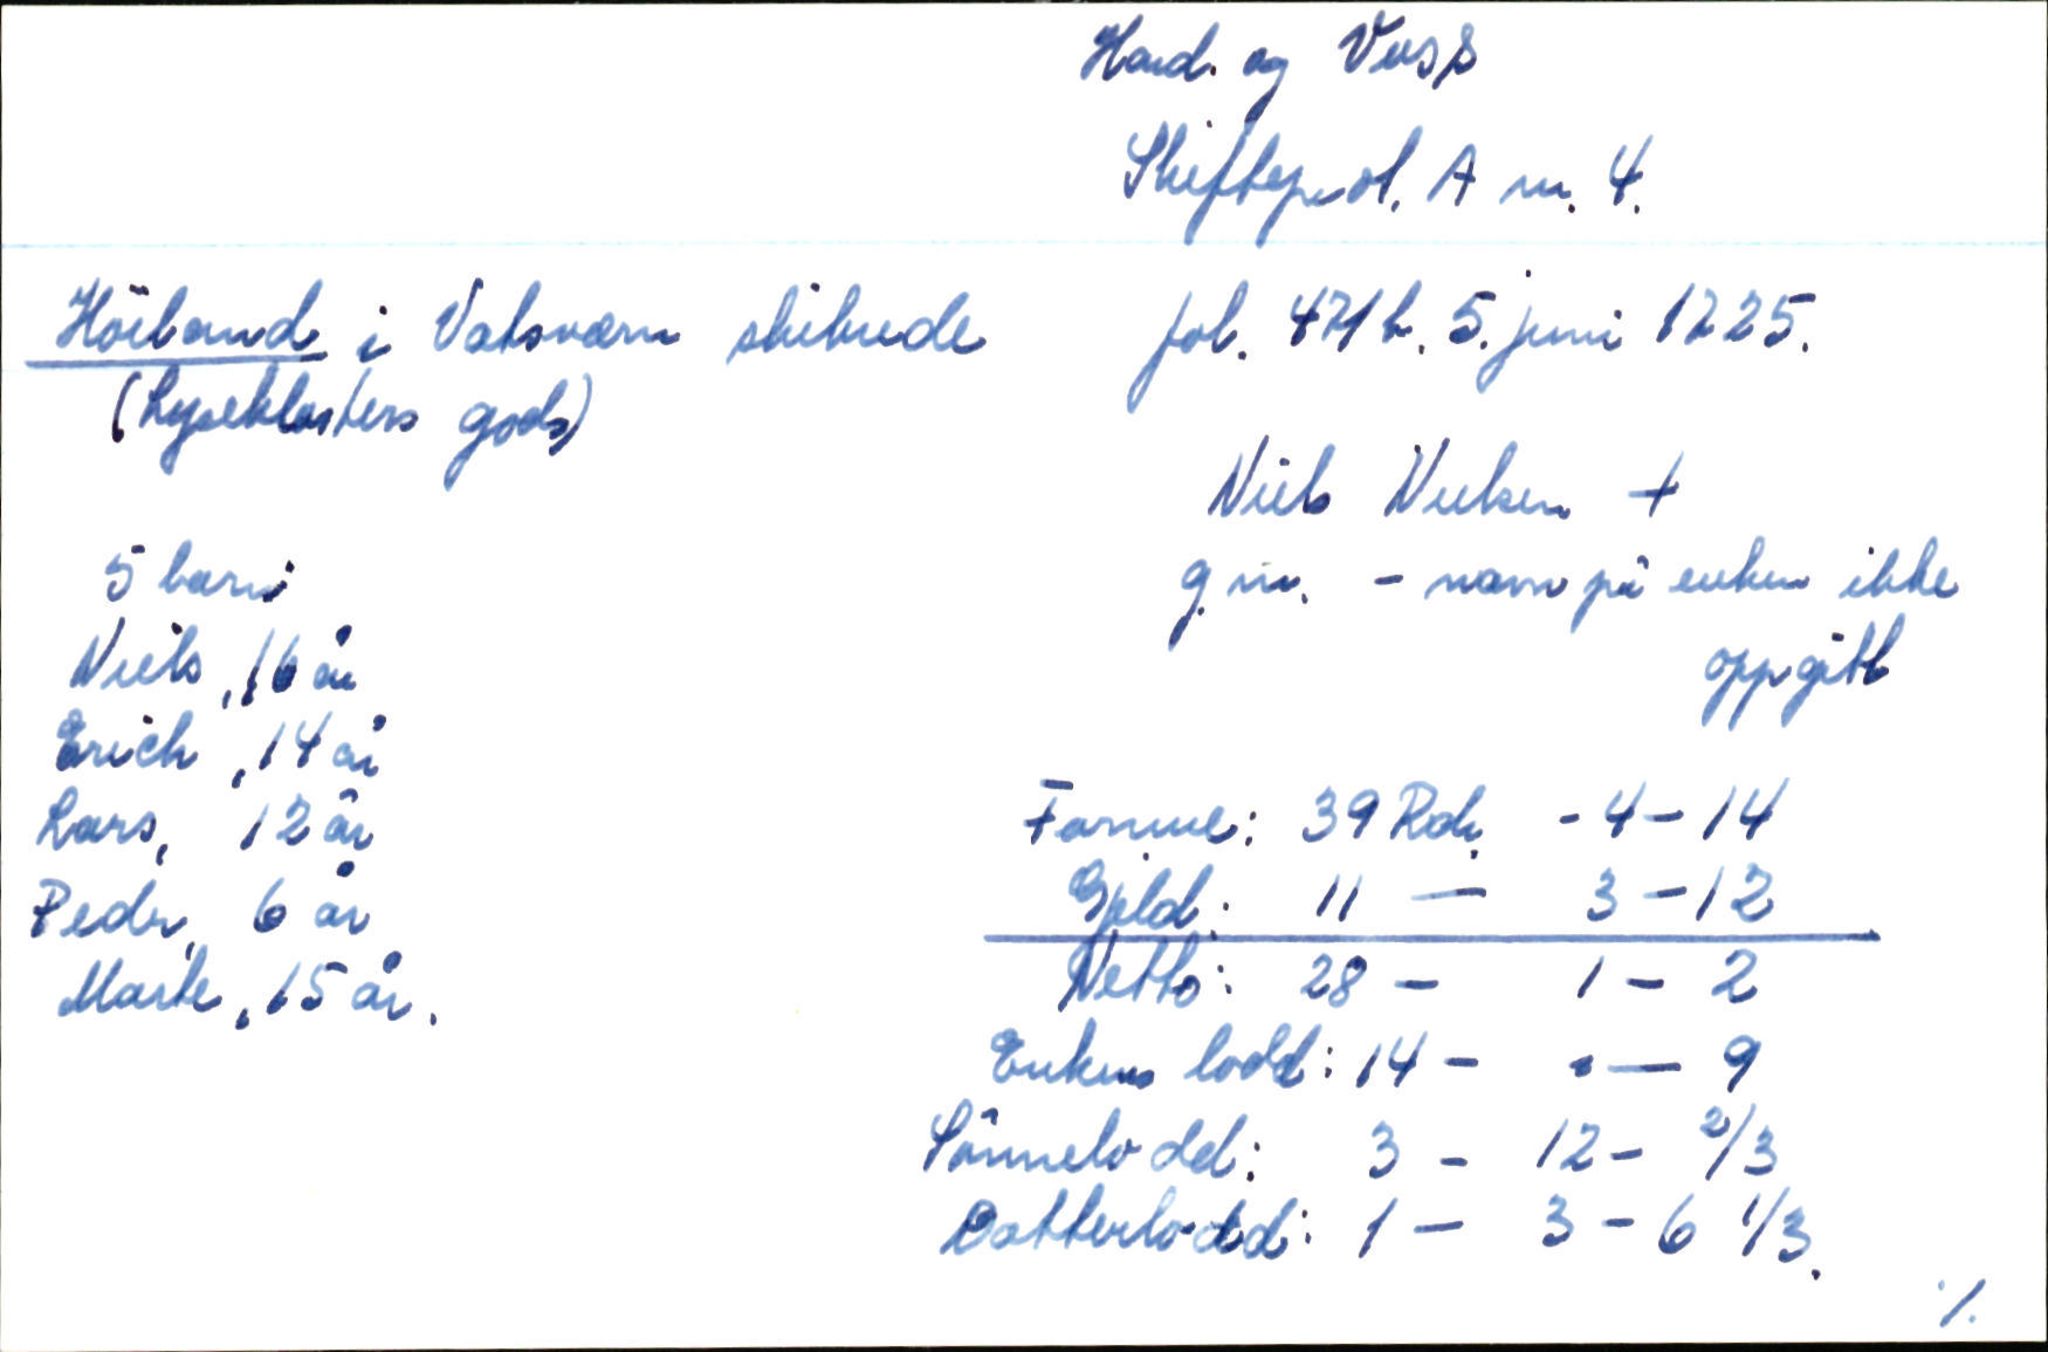 Hard. og Voss
Skifteprot. A nr. 4.
Höiland i Vatsværn skibrede fol. 471b. 5. juni 1725.
(Lyseklosters gods)
Niels Nielsen +
g.m. - navn på enken ikke
oppgitt
5 barn:
Niels, 16 år
Erich, 14 år
Lars, 12 år
Peder, 6 år
Marte, 15 år.
Formue: 39 Rdr. - 4 - 14
Gjeld: 11 — 3 - 12
Netto: 28 - 1 - 2
Enkens lodd: 14 - • — 9
Sönnelodd: 3 - 12 - 2/3
Datterlodd: 1 - 3 - 6 1/3.
./.